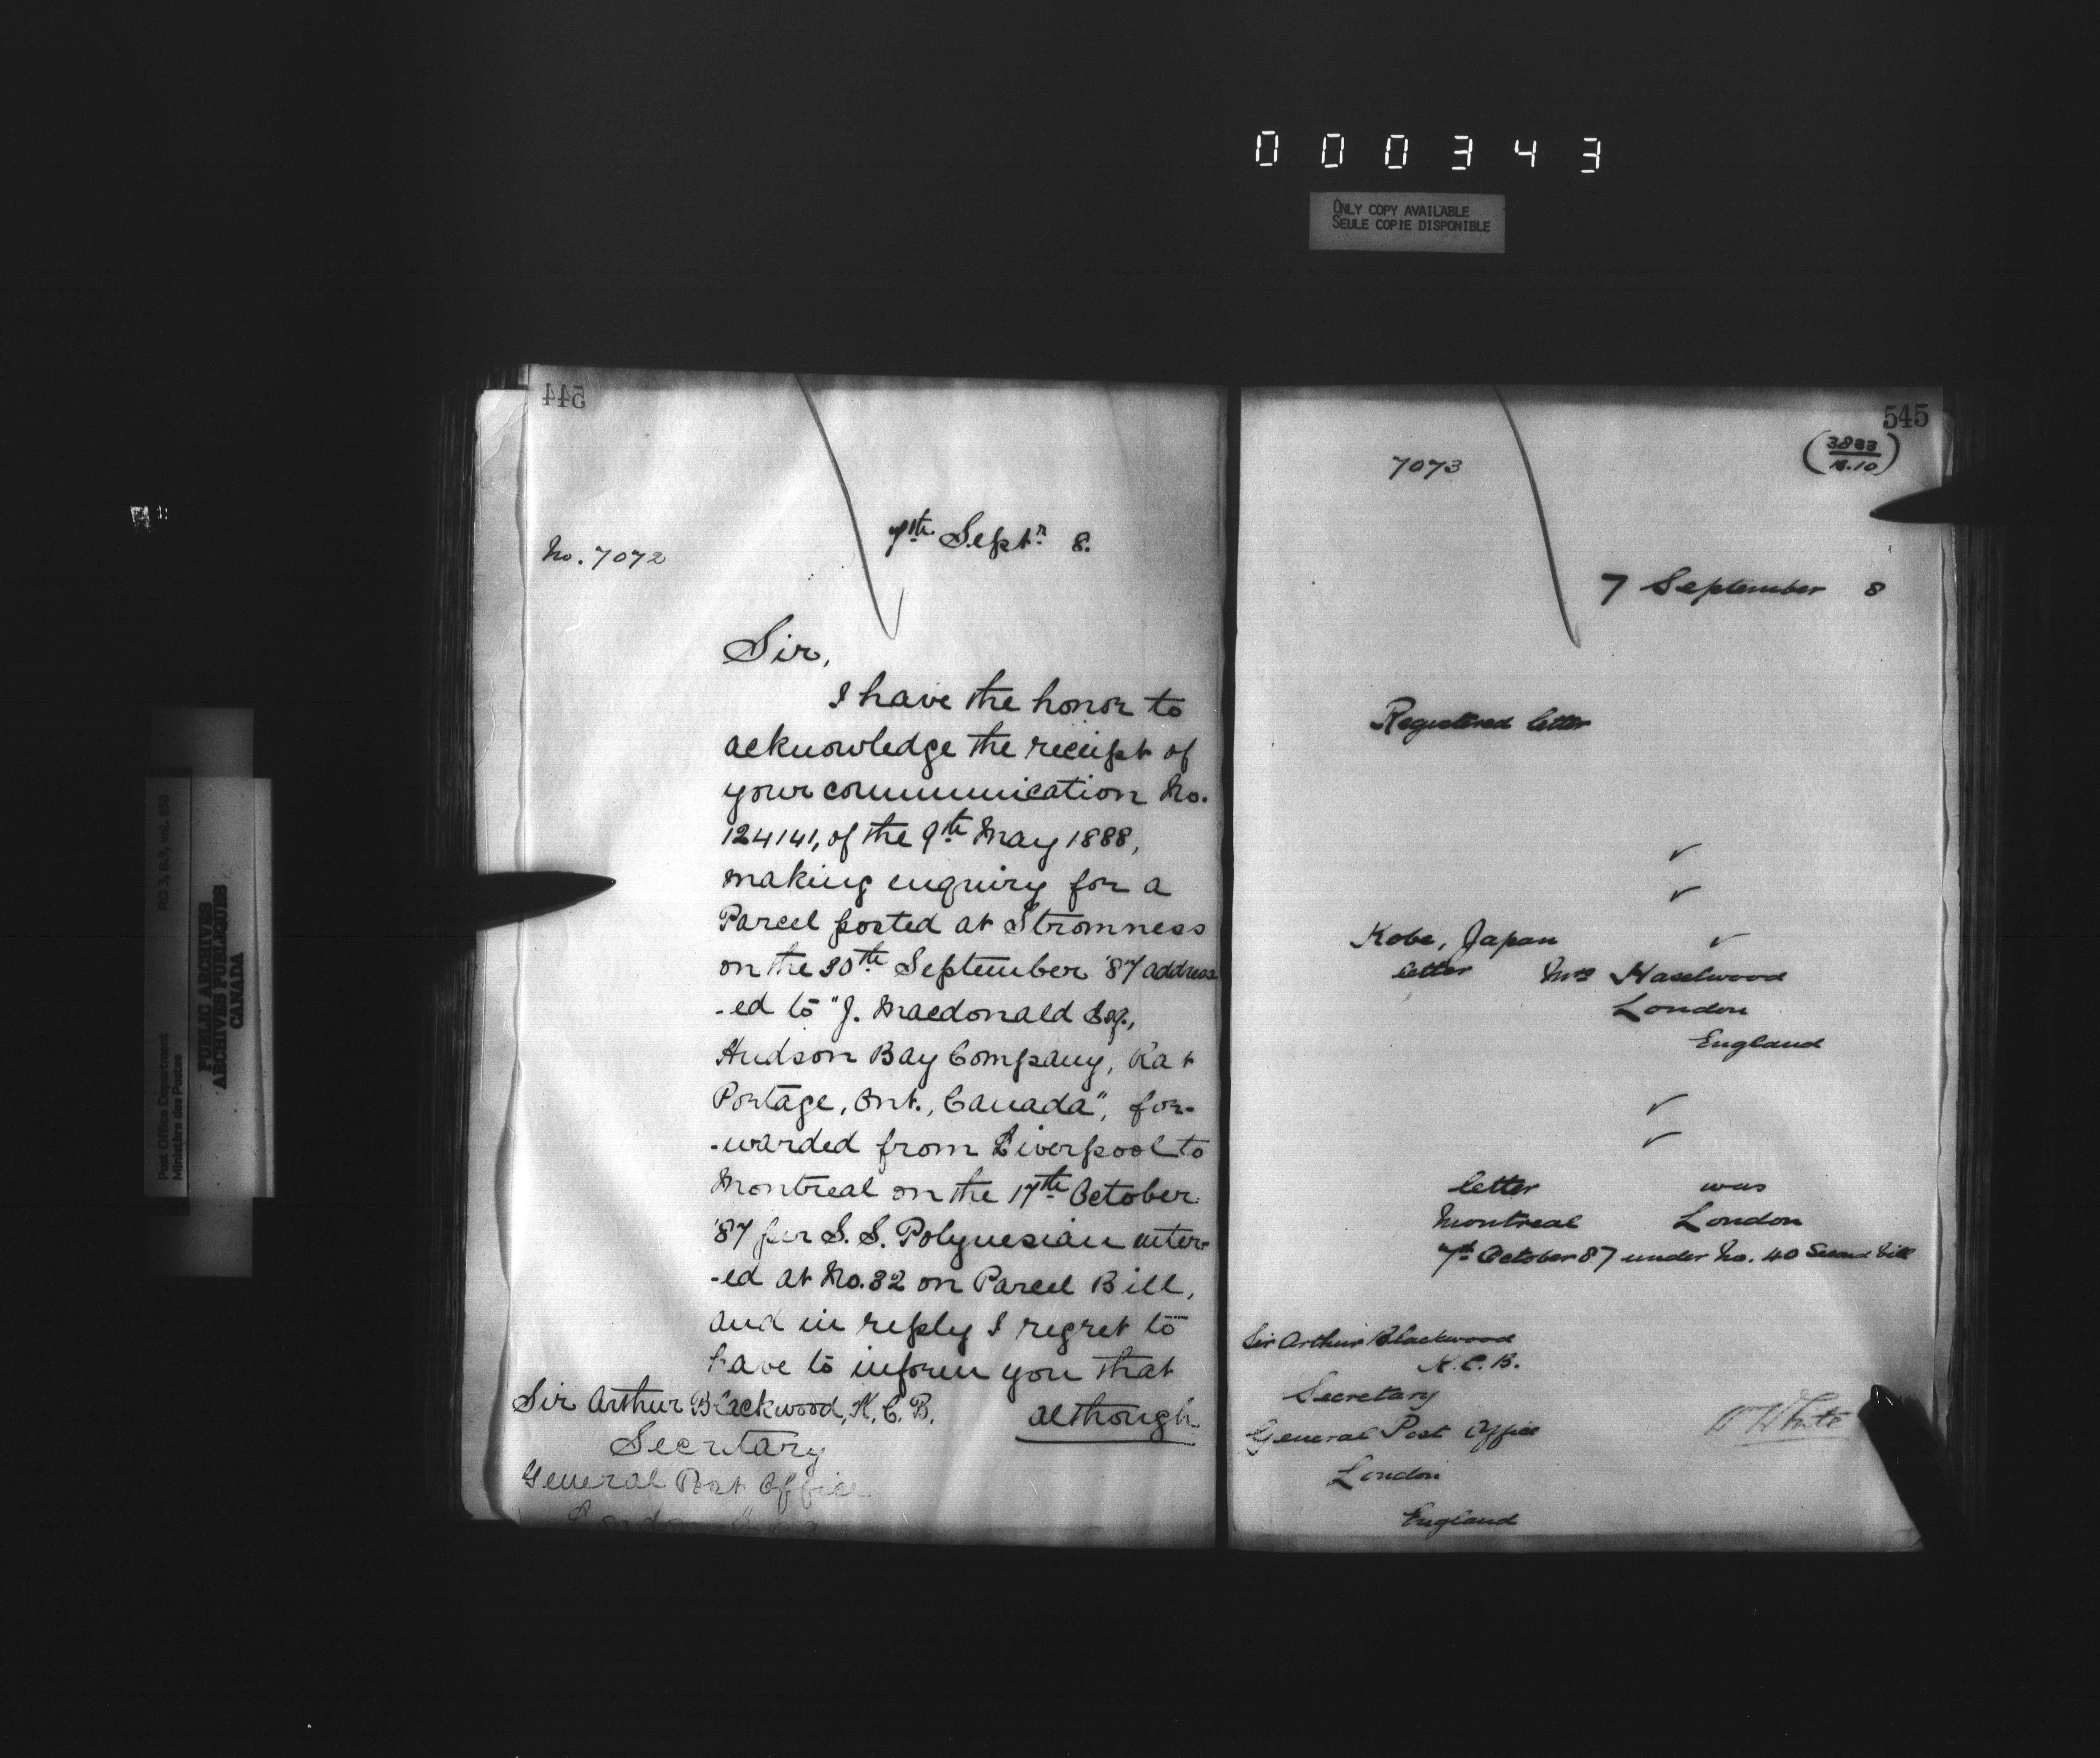 000343
ONLY COPY AVAILABLE
SEULE COPIE DISPONIBLE
544
No. 7072
7th Septr. 8.
Sir,
I have the honor to
acknowledge the receipt of
your communication No.
124141, of the 9th May 1888,
making enquiry for a
Parcel posted at Stromness
on the 30th September '87 address
-ed to "J. Macdonald Esq.,
Hudson Bay Company, Rat
Portage, Ont., Canada", for-
-warded from Liverpool to
Montreal on the 17th October
'87 per S. S. Polynesian enter-
-ed at No. 32 on Parcel Bill,
and in reply I regret to
have to inform you that
although
Sir Arthur Blackwood, K. C. B.
Secretary
General Post Office
London
545
7073
7 September 8
Registered letter
Kobe, Japan
letter Mrs Haselwood
London
England
letter was
Montreal London
7th October 87 under No. 40 Second bill
Sir Arthur Blackwood
K. C. B.
Secretary
General Post Office
London
England
White
Post Office Department
Ministère des Postes
RG 3, B.9, vol.
PUBLIC ARCHIVES
ARCHIVES PUBLIQUES
CANADA